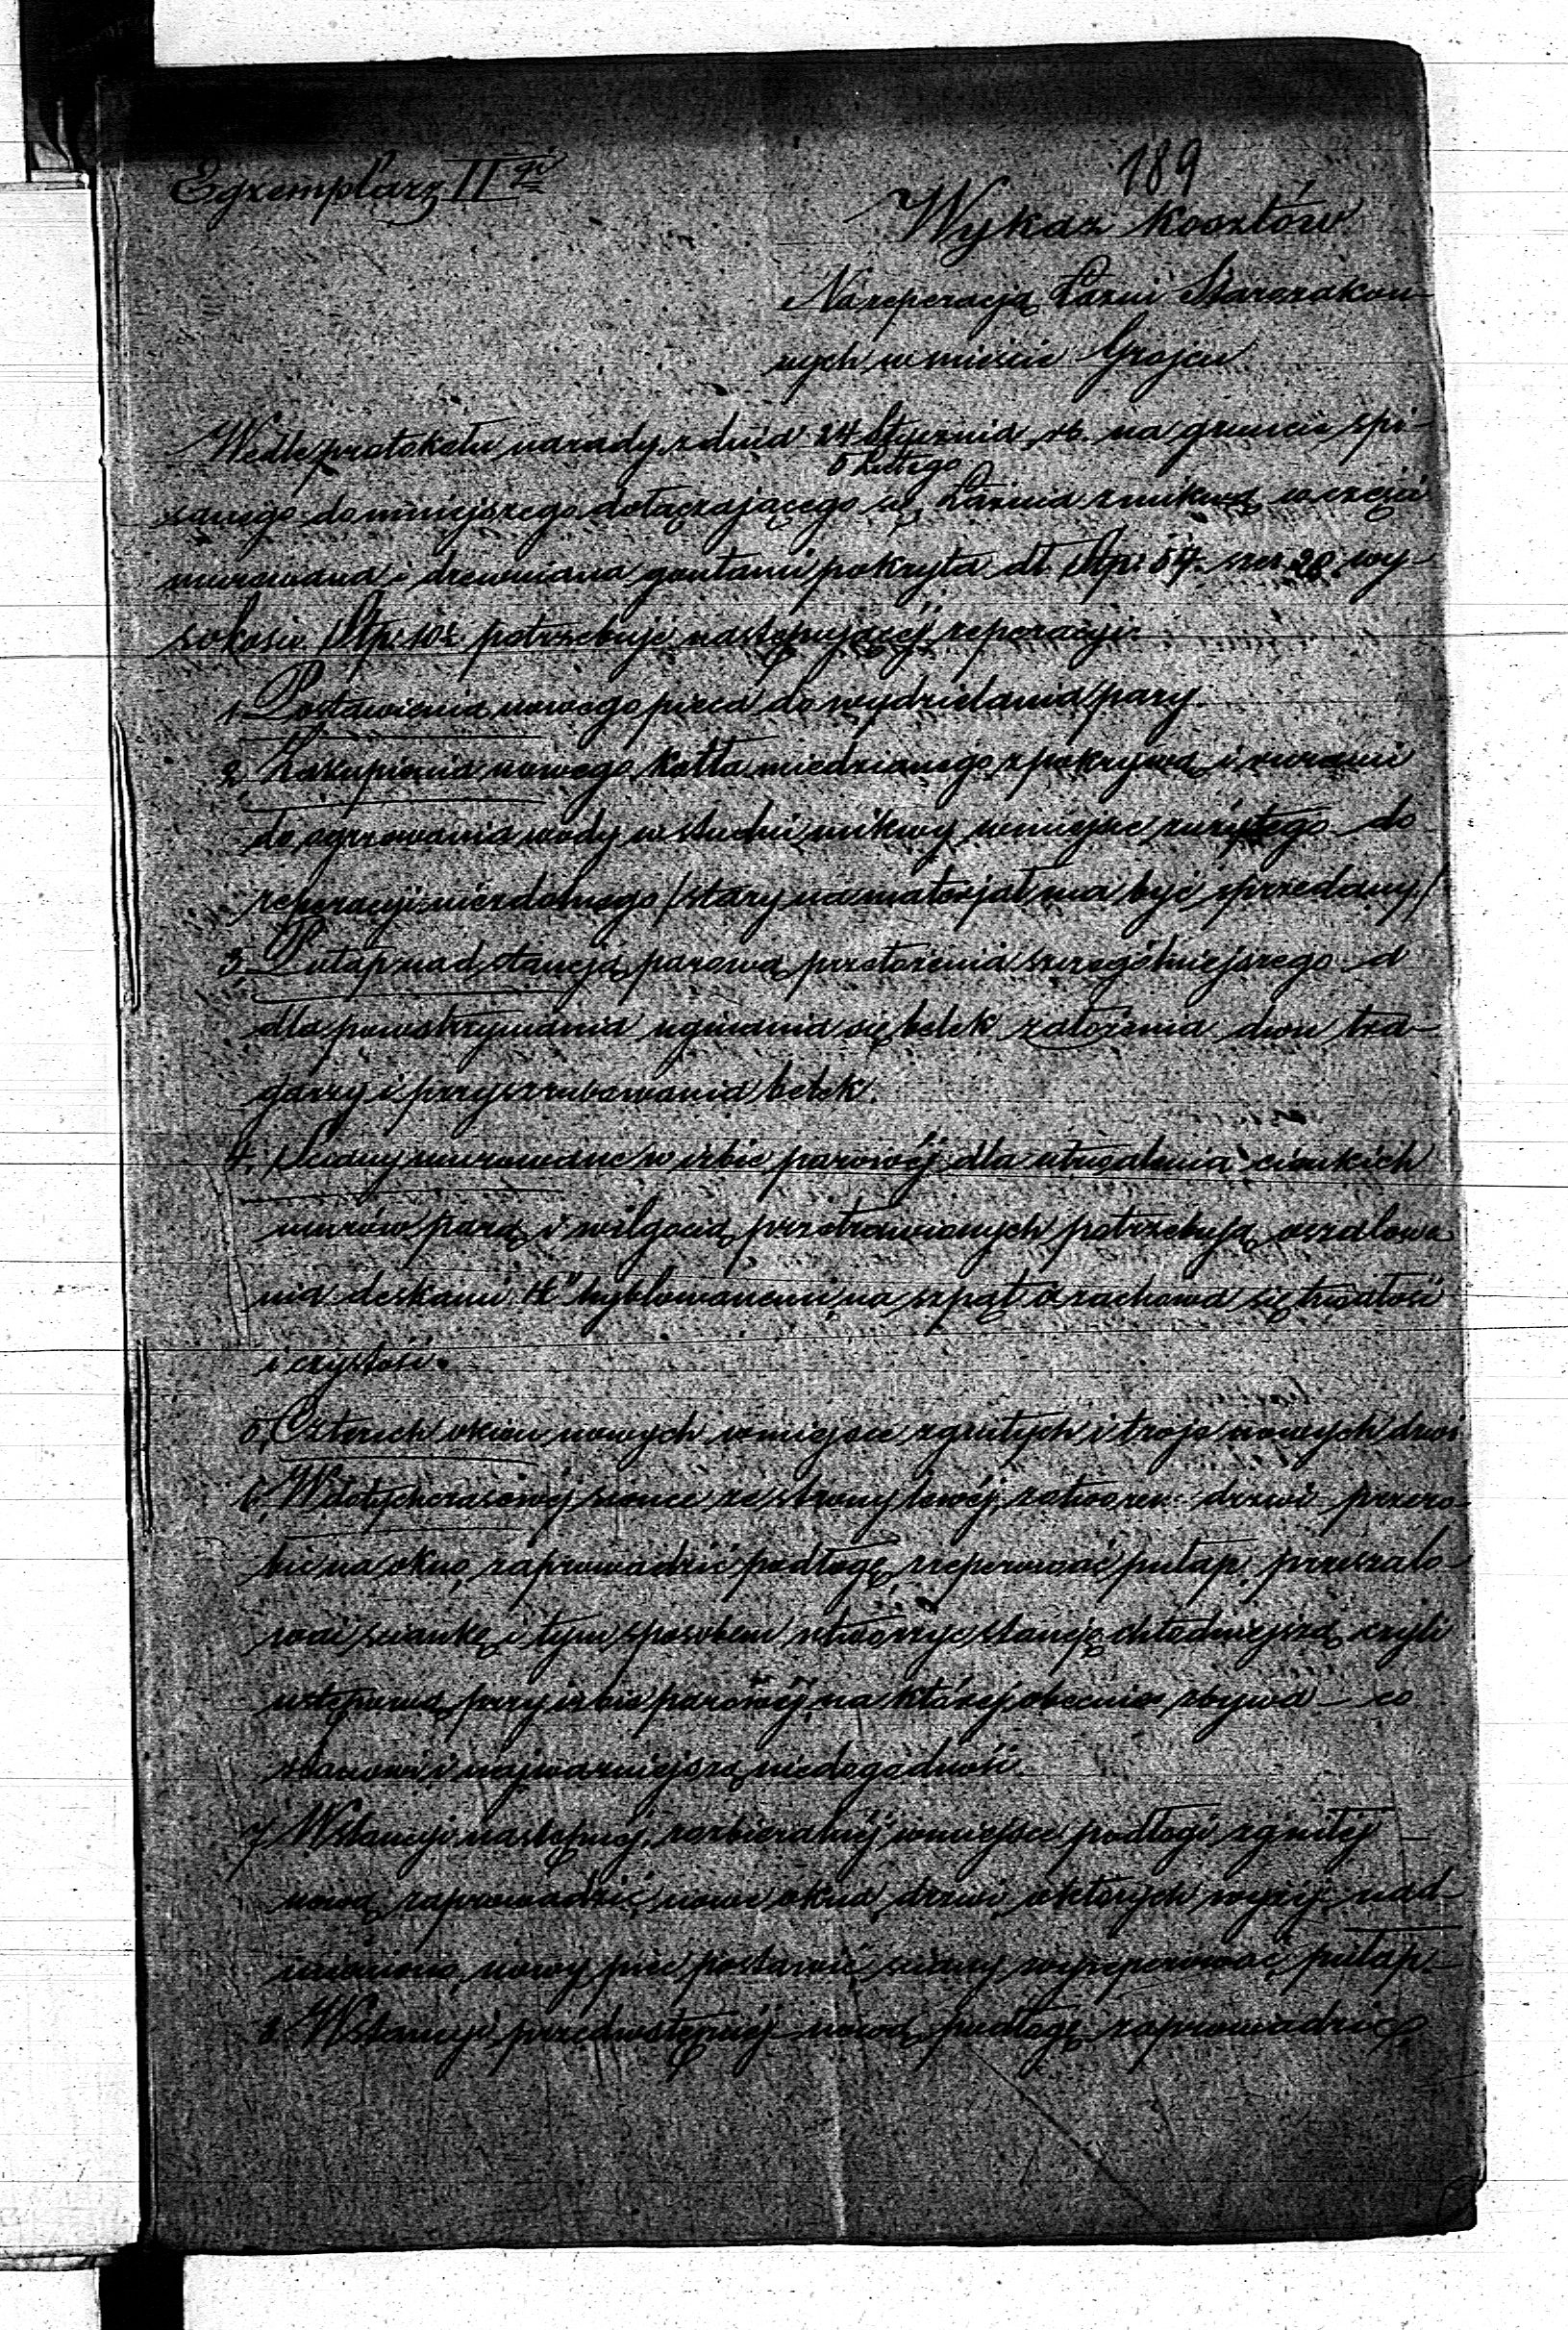 Egzemplarz II gi
189
Wykaz kosztów
Na reperacją Łazni Starozakon-
nych w mieście Grojcu
Wedle protokołu narady z dnia 24 Stycznia rb. na gruncie spi-
5 Lutego
sanego do niniejszego dołączającego się, Łaznia z mikwą w części
murowana i drewniana gontami pokryta dł. Stp: 57. szer. 20. wy-
sokości Stp. 10½ potrzebuje następującej reperacyi:
1, Postawienia nowego pieca do wydzielania pary.
2, Zakupienia nowego kotła miedzianego z pokrywą i rurami
do ogrzewania wody w studni mikwy w miejsce zużytego do
reperacyi niezdolnego /stary na materjał ma być sprzedany/
3, Pułap nad stancją parową przełożenia szczególniejszego d
dla powstrzymania uginania się belek założenia dwu tra-
garzy i przyszrubowania belek.
4, Sciany murowane w izbie parowéj dla utrwalenia cienkich
murów parą i wilgocią przetrawionych potrzebują oszalowa
nia deskami 1½" hyblowanemi na szpąt a zachowa się trwałość
i czystość.
5, Czterech okien nowych w miejsce zgniłych i troje nowych drzwi
6, W dotychczasowéj sience ze strony lewéj zatworem drzwi przero-
bić na okno, zaprowadzić podłogę, zreperować pułap, przeszalo-
wać sciankę i tym sposobem utworzyć stancję chłodniejszą czyli
wstępową przy izbie parowéj, na któréj obecnie zbywa – co
stanowi najważniejszą niedogodność.
7, W stancyi następnéj rozbieralnéj w miejsce podłogi zgniłéj –
nową zaprowadzić, nowe okna, drzwi, o których wyżéj nad-
mieniono, nowy piec postawić, sciany wyreperować, pułap –
8. W stancyi przedwstępnéj nową podłogę zaprowadzić,